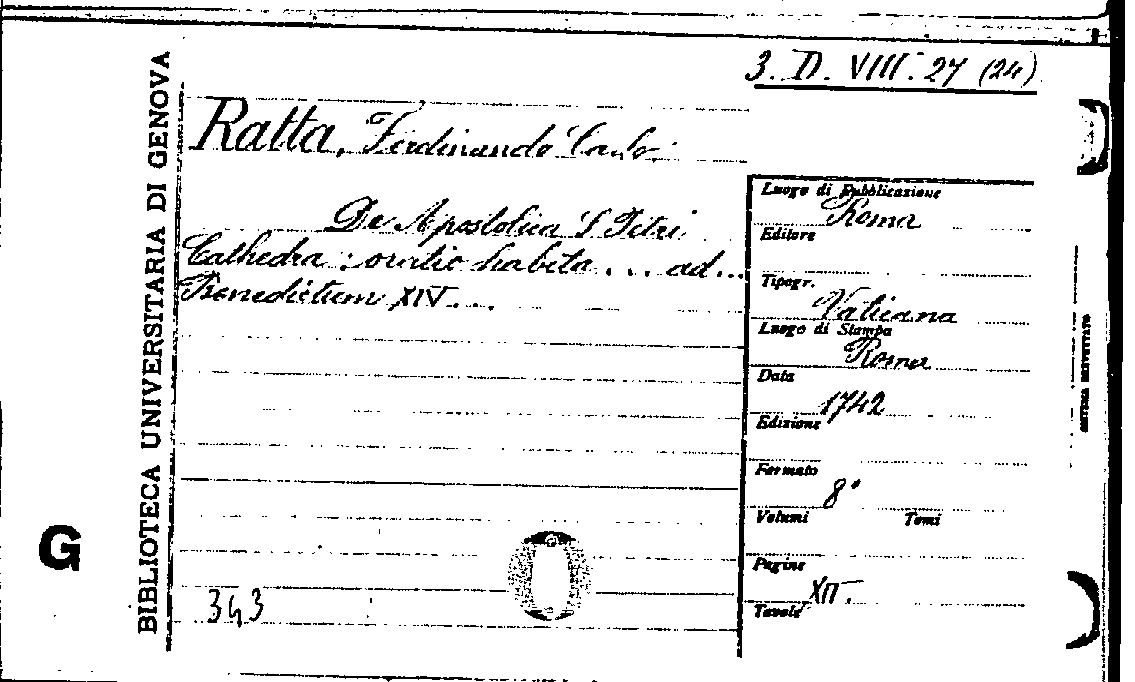 3. D. VIII. 27 (24)
BIBLIOTECA UNIVERSITARIA DI GENOVA
Ratta, Ferdinando Carlo
De Apostolica S Petri
Cathedra : oratio habita ... ad ...
Benedictum XIV ...
Luogo di Pubblicazione
Roma
Editore
Tipogr.
Vaticana
Luogo di Stampa
Roma
Data
1742
Edizione
Formato
8°
Volumi Tomi
Pagine
XII.
Tavole
G
343